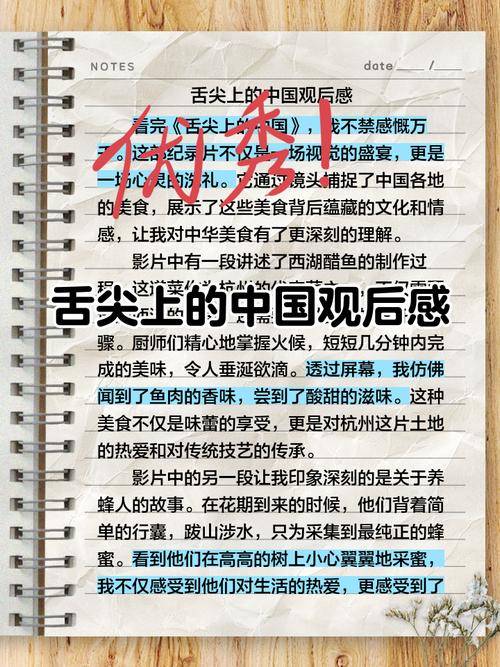 NOTES
date ____ / ____
舌尖上的中国观后感
看完《舌尖上的中国》，我不禁感慨万
千。这部纪录片不仅是一场视觉的盛宴，更是
一场心灵的洗礼。它通过镜头捕捉了中国各地
的美食，展示了这些美食背后蕴藏的文化和情
感，让我对中华美食有了更深刻的理解。
优秀！
影片中有一段讲述了西湖醋鱼的制作过
舌尖上的中国观后感
骤。厨师们精心地掌握火候，短短几分钟内完
成的美味，令人垂涎欲滴。透过屏幕，我仿佛
闻到了鱼肉的香味，尝到了酸甜的滋味。这种
美食不仅是味蕾的享受，更是对杭州这片土地
的热爱和对传统技艺的传承。
影片中的另一段让我印象深刻的是关于养
蜂人的故事。在花期到来的时候，他们背着简
单的行囊，跋山涉水，只为采集到最纯正的蜂
蜜。看到他们在高高的树上小心翼翼地采蜜，
我不仅感受到他们对生活的热爱，更感受到了